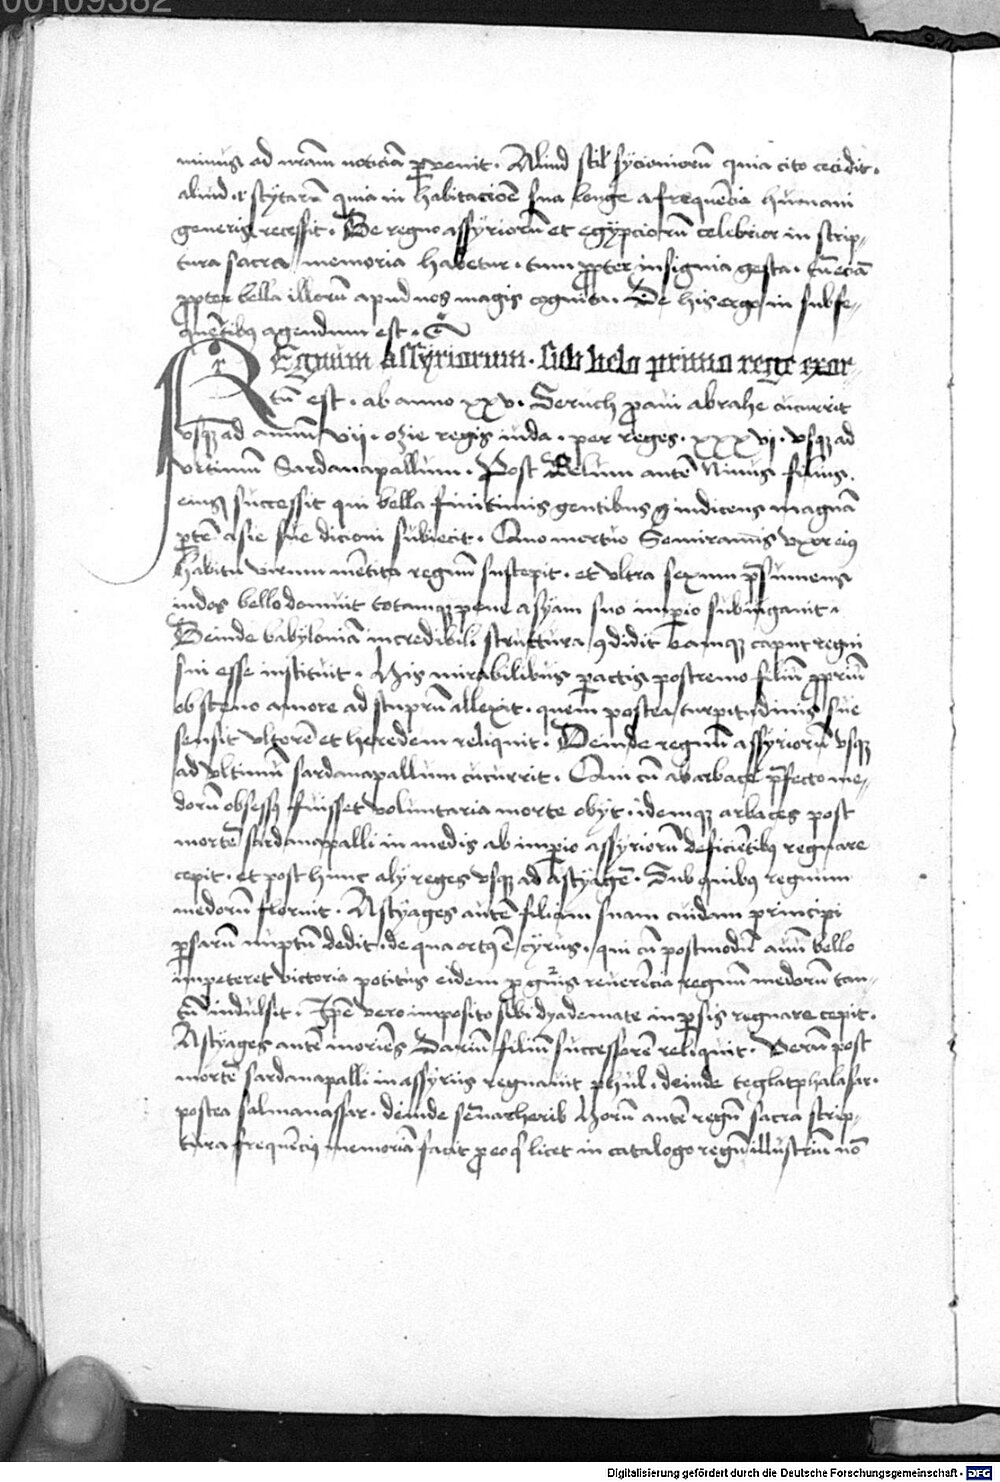 00109382
minus ad nr̄am noticiā ꝑvenit. Aliud scil' sycioniorū quia cito cecidit.
aliud .s. scytarū quia in habitacōe sua longe a frequēcia humani
generis recessit. De regno assyriorū et egypciorū celebrior in scrip-
tura sacra memoria habetur. tum ꝓpter insignia gesta. tū eciā
ꝓpter bella illorū apud nos magis cognita. De his ergo in subse-
quētibꝰ agendum est.
REgnum assyriorum. sub belo primo rege exor-
tū est. ab anno xxv. Seruch ꝓaui abrahe cucurrit
vsqꝫ ad annū viii. ozie regis iuda. per reges. xxxvi. vsqꝫ ad
vltimū Sardanapallum. Post Belum autē Ninus filius
eius successit qui bella finitimis gentibus indicens magnā
ꝑtē asie sue dicioni subiecit. Quo mortuo Semiramis vxor eiꝰ
habitu virum mētita regnū suscepit. et vltra sexum p̄sumens
indos bello domuit totamqꝫ pene asyam suo imꝑio subiugauit.
Deinde babyloniā incredibili structura ꝯdidit eamqꝫ caput regni
sui esse instituit. His mirabilibus ꝑactis postremo filiū ꝓpriū
obsceno amore ad stuprū allexit. quem postea turpitudinis sue
sensit vltorē et heredem reliquit. Deinde regnū assyriorū vsqꝫ
ad vltimū sardanapallum cucurrit. Qui cū ab arbace p̄fecto me-
dorū obsessꝰ fuisset voluntaria morte obyt. idemqꝫ arbaces post
mortē sardanapalli in medis ab imꝑio assyriorū deficiētibꝰ regnare
cepit. et post hunc aly reges vsqꝫ ad Astyagē. Sub quibꝰ regnum
medorū floruit. Astyages autē filiam suam cuidam principi
ꝑsarū nuptū dedit. de qua ortꝰ ē cyrus. qui cū postmodū auū bello
impeteret victoria potitus eidem ꝓ reuerēcia regnū medorū tan-
tū indulsit. Ipē vero imposito sibi dyademate in ꝑsis regnare cepit.
Astyages autē moriēs Dariū filiū successorē reliquit. Verū post
mortē sardanapalli in assyriis regnauit phul. deinde teglatphalasar.
postea salmanassar. deinde sēnacherib Horū autē regū sacra scrip-
tura frequēciꝰ memoriā facit ꝓ eo licet in catalogo regū illustriū nō
Digitalisierung gefördert durch die Deutsche Forschungsgemeinschaft - DFG